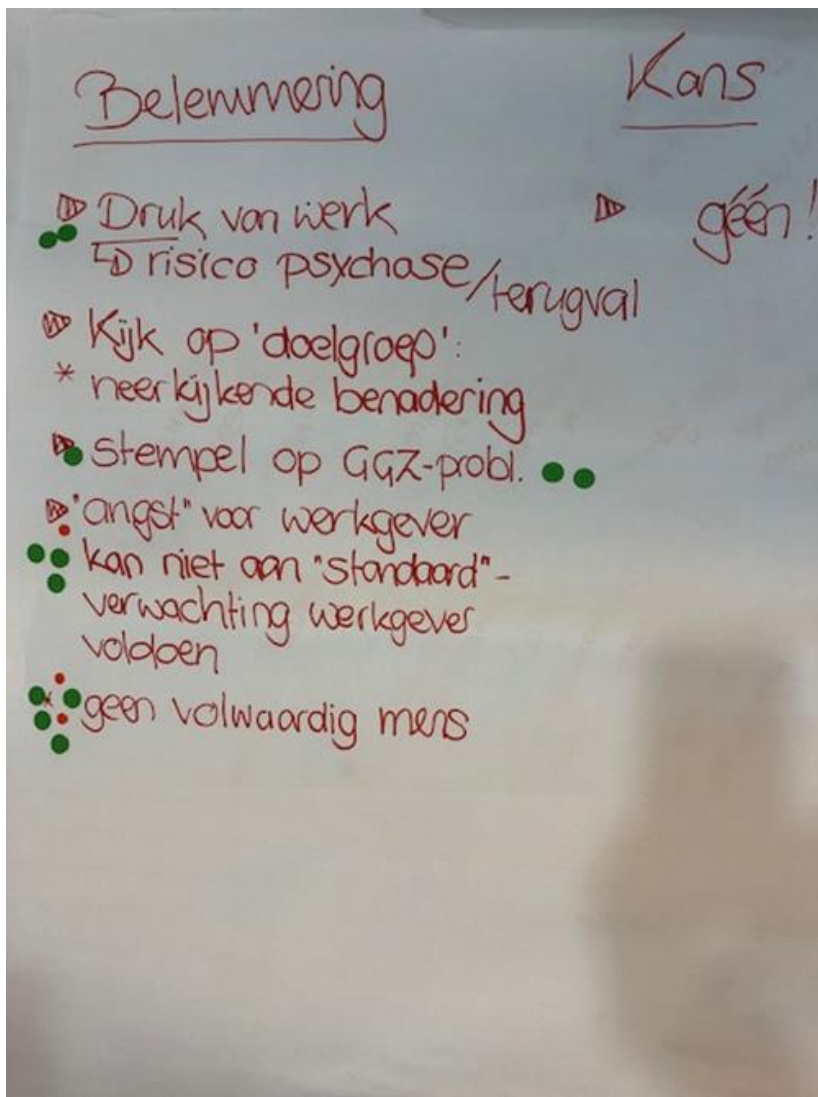 Belemmering
Kans
Druk van werk
risico psychose/terugval
Kijk op 'doelgroep':
* neerkijkende benadering
stempel op GGZ-probl.
"angst" voor werkgever
kan niet aan "standaard"-
verwachting werkgever
voldoen
* geen volwaardig mens
géén!